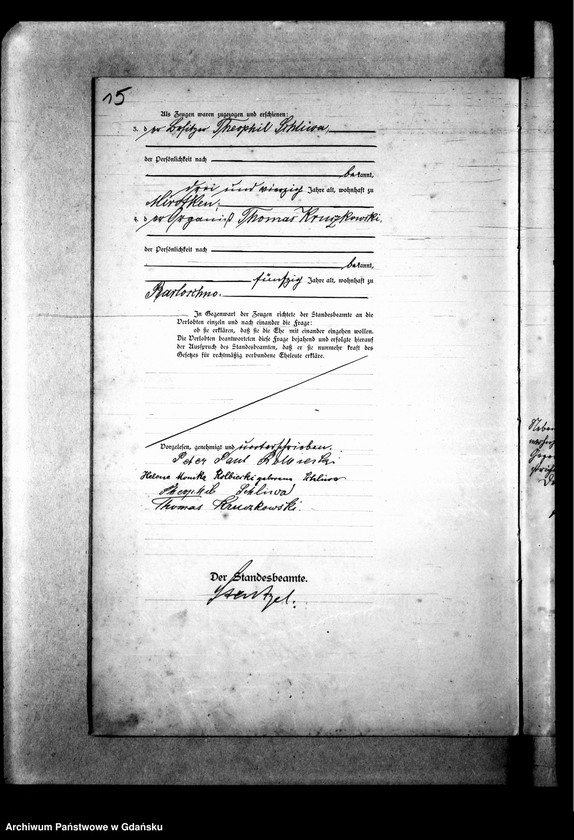 15
Als Zeugen waren zugezogen und erschienen:
3. der Besitzer Theophil Schliwa
der Persönlichkeit nach
bekannt,
drei und vierzig Jahre alt, wohnhaft zu
Mirotken.
4. der Organist Thomas Kruzkowski,
der Persönlichkeit nach
bekannt,
fünfzig Jahre alt, wohnhaft zu
Barloschno.
In Gegenwart der Zeugen richtete der Standesbeamte an die
Verlobten einzeln und nach einander die Frage:
ob sie erklären, daß sie die Ehe mit einander eingehen wollen.
Die Verlobten beantworteten diese Frage bejahend und erfolgte hierauf
der Ausspruch des Standesbeamten, daß er sie nunmehr kraft des
Gesetzes für rechtmäßig verbundene Eheleute erkläre.
Vorgelesen, genehmigt und unterschrieben.
Peter Paul Kolbieski
Helene Monika Kolbieski geborene Schliwa
Theophil Schliwa
Thomas Kruzkowski.
Der Standesbeamte.
Stentzel.
Archiwum Państwowe w Gdańsku